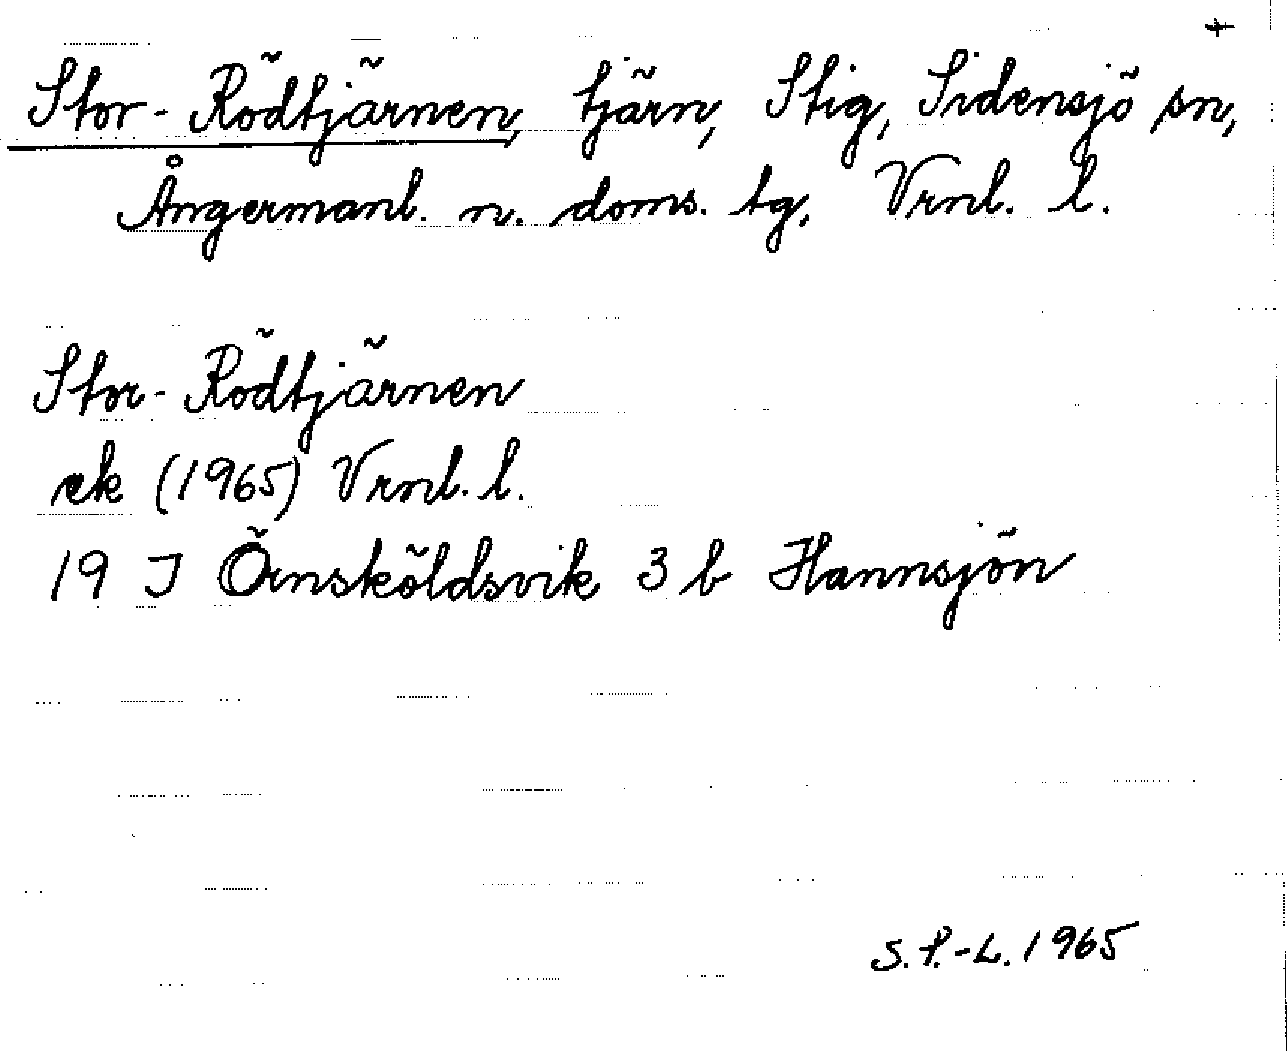 Stor-Rödtjärnen, tjärn, Stig, Sidensjö sn,
Ångermanl. n. doms. tg, Vrnl. l.
Stor-Rödtjärnen
ek (1965) Vrnl. l.
19 J Örnsköldsvik 3 b Hannsjön
S.P.-L. 1965